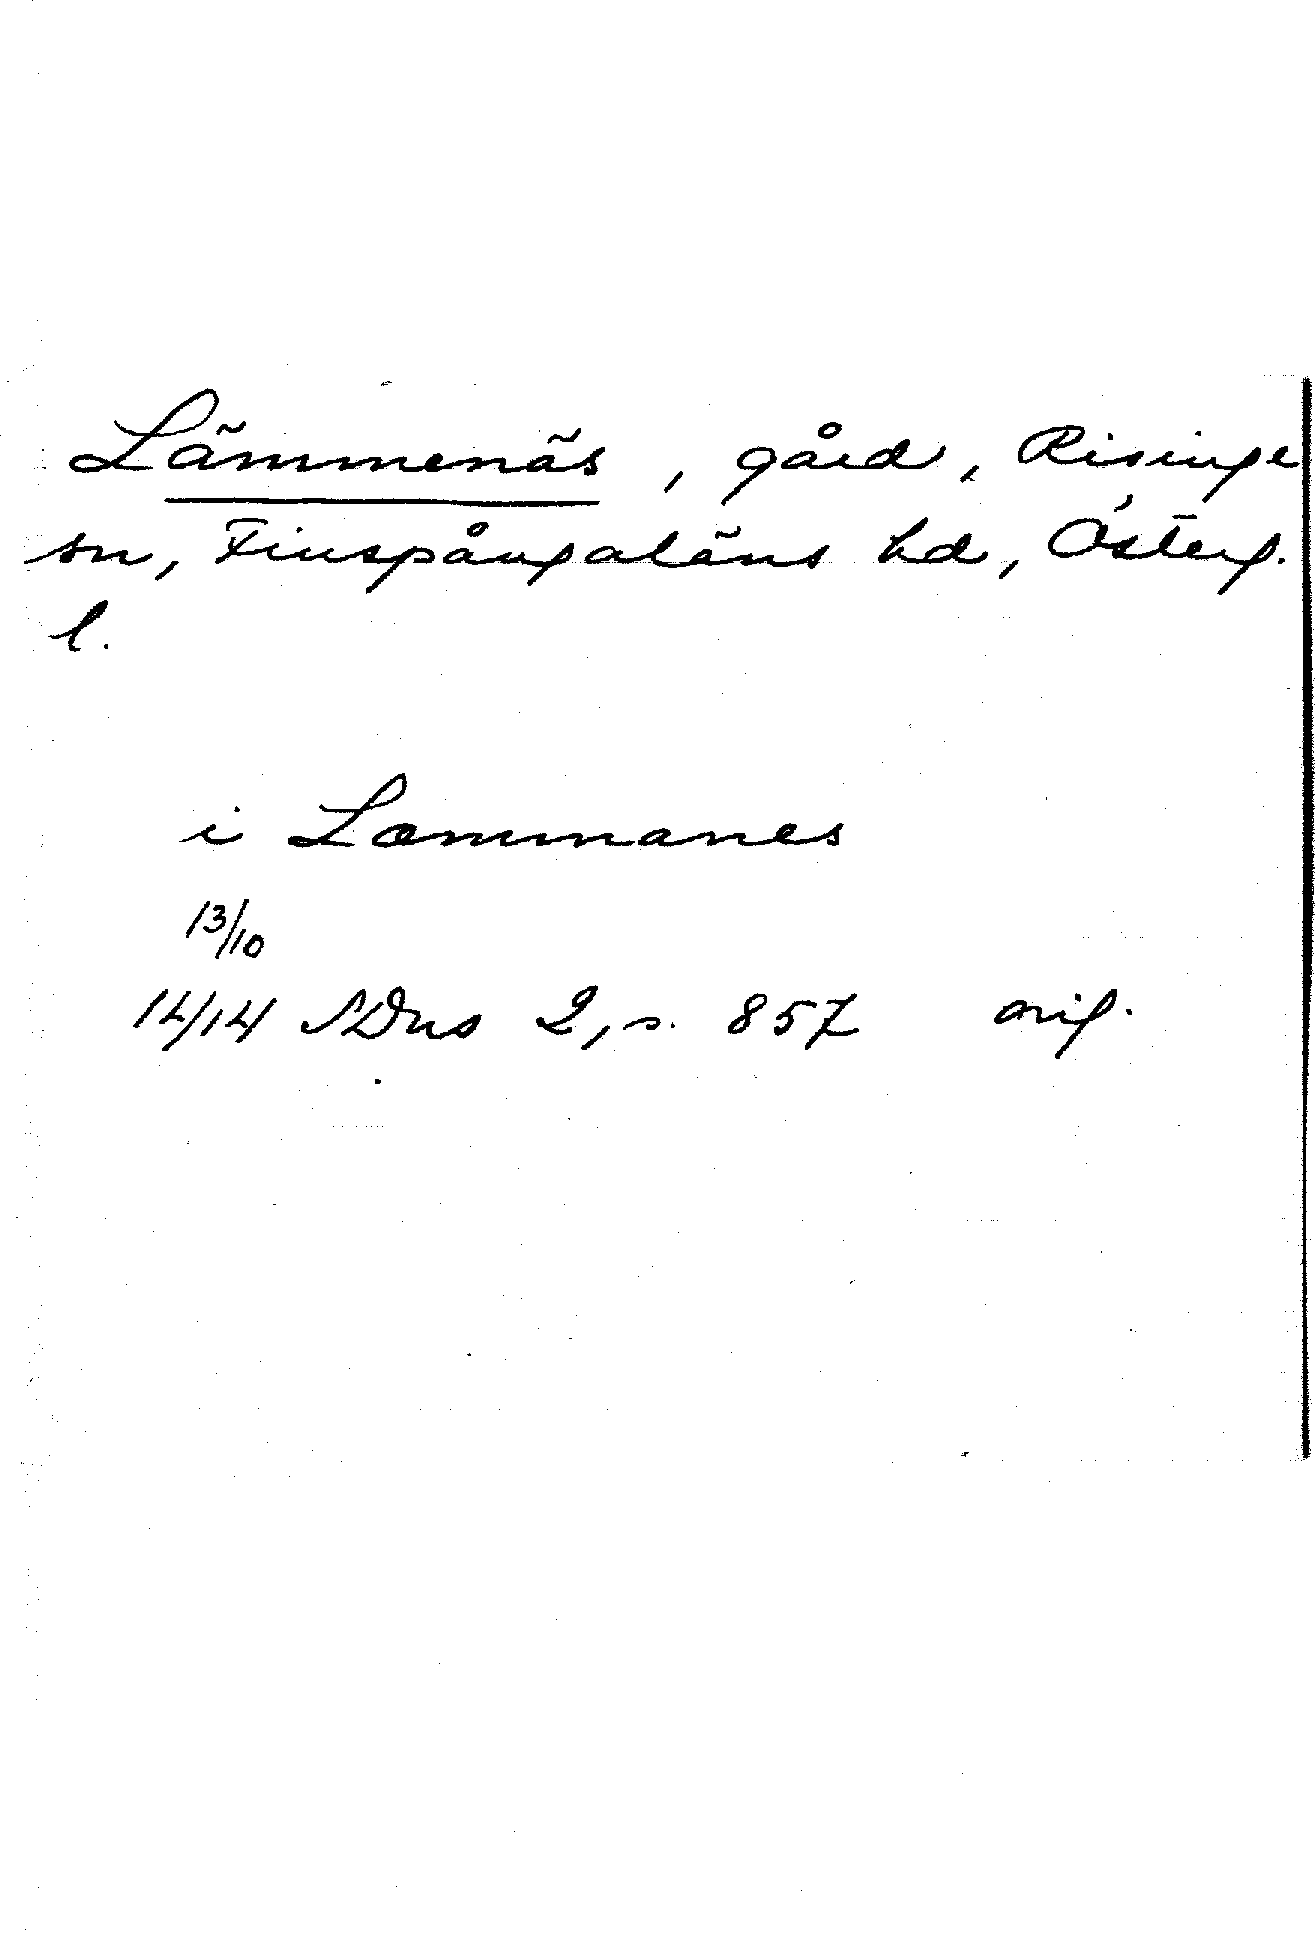 Lämmenäs, gård, Risinge
sn, Finspångaläns hd, Österg.
l.
i Læmmanes
13/10
1414 SDns 2, s. 857 orig.